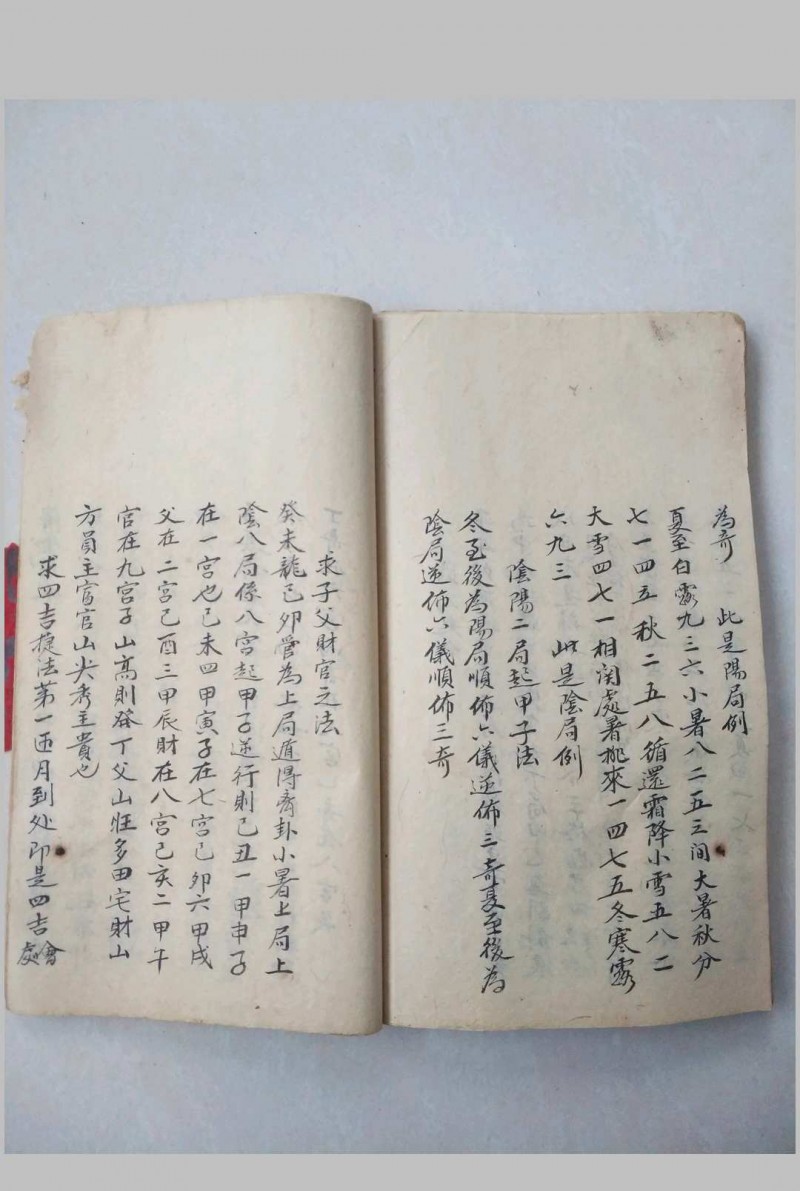 為奇　此是陽局例
夏至白露九三六小暑八二五之间大暑秋分
七一四立秋二五八循還霜降小雪五八二
大雪四七一相関處暑排來一四七立冬寒露
六九三　此是陰局例
陰陽二局起甲子法
冬至後為陽局順佈六儀逆佈三奇夏至後為
陰局逆佈六儀順佈三奇
求子父財官之法
癸未龍己卯管為上局遁得卦小暑上局上
陰八局係八宮起甲子逆行則己丑一甲申子
在一宮也己未四甲寅子在七宮己卯六甲戌
父在二宮己酉三甲辰財在八宮己亥二甲午
官在九宮子山高則發丁父山旺多田宅財山
方員主富官山尖秀主貴也
求四吉捷法第一月到处即是四吉會處